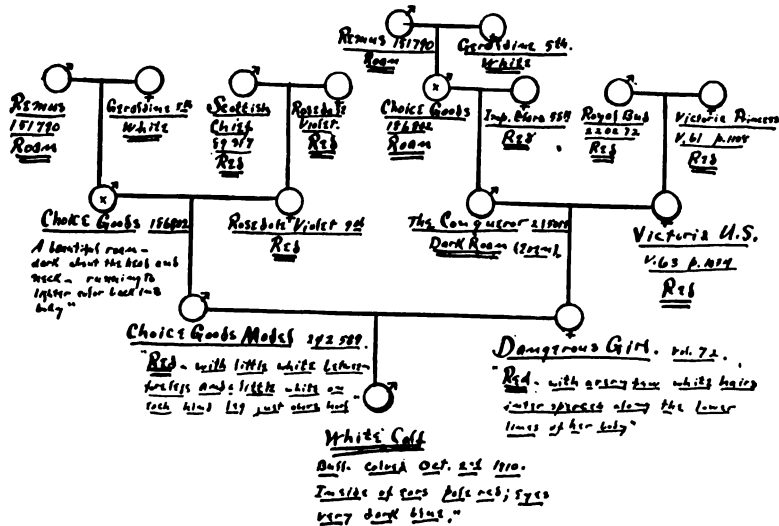 Remus 151790
Roan
Geraldine 5th.
White
Remus
151790
Roan
Geraldine 5th
White
Scottish
Chief
59317
Red
Rosedale
Violet.
Red
Choice Goods
186802
Roan
Imp. Clara 55th
Red
Royal Bud
220272
Red
Victoria Princess
V.61 p.1108
Red
Choice Goods 186802
A beautiful roan -
dark about the head and
neck - running to
lighter color back into
body"
Rosedale Violet 9th
Red
The Conqueror
Dark Roan
Victoria U.S.
V.63 p.1104
Red
Choice Goods Model 292589.
"Red - with little white between
forelegs and a little white on
each hind leg just above hoof"
Dangerous Girl. vol. 72.
"Red - with a very few white hairs
interspersed along the lower
lines of her body"
White Calf
Bull. calved Oct. 2nd 1910.
Inside of ears pale red; eyes
very dark blue."